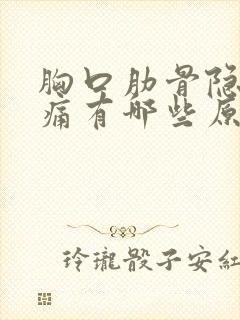 胸口肋骨隐
痛有哪些原
玲瓏骰子安紅